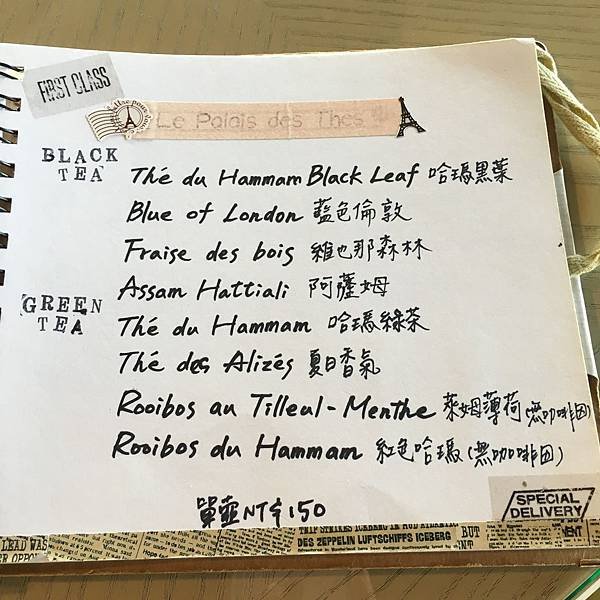 FIRST CLASS
Le Palais des Thes
BLACK
TEA
Thé du Hammam Black Leaf 哈瑪黑葉
Blue of London 藍色倫敦
Fraise des bois 維也那森林
Assam Hattiali 阿薩姆
GREEN
TEA
Thé du Hammam 哈瑪綠茶
Thé des Alizés 夏日香氣
Rooibos au Tilleul-Menthe 萊姆薄荷(無咖啡因)
Rooibos du Hammam 紅色哈瑪(無咖啡因)
單壺NT$150
SPECIAL
DELIVERY
TRIP STRIKES ICEBERG IN
DES ZEPPELIN LUFTSCHIFFS ICEBERG
BUT
LEAD WAS